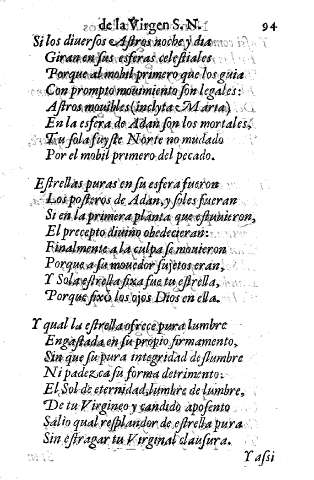 de la Virgen S. N. 94
Si los diuersos Astros noche y dia
Giran en sus esferas celestiales
Porque al mobil primero que los guia
Con prompto mouimiento son legales:
Astros mouibles (inclyta Maria)
En la esfera de Adan son los mortales,
Tu sola fuyste Norte no mudado
Por el mobil primero del pecado.
Estrellas puras en su esfera fueron
Los posteros de Adan, y soles fueran
Si en la primera planta que estuuieron,
El precepto diuino obedecieran:
Finalmente a la culpa se mouieron
Porque a su mouedor sujetos eran,
Y Sola estrella fixa fue tu estrella,
Porque fixò los ojos Dios en ella.
Y qual la estrella ofrece pura lumbre
Engastada en su propio firmamento,
Sin que su pura integridad deslumbre
Ni padezca su forma detrimento:
El Sol de eternidad, lumbre de lumbre,
De tu Virgineo y candido aposento
Salio qual resplandor de estrella pura
Sin estragar tu Virginal clausura.
Y assi